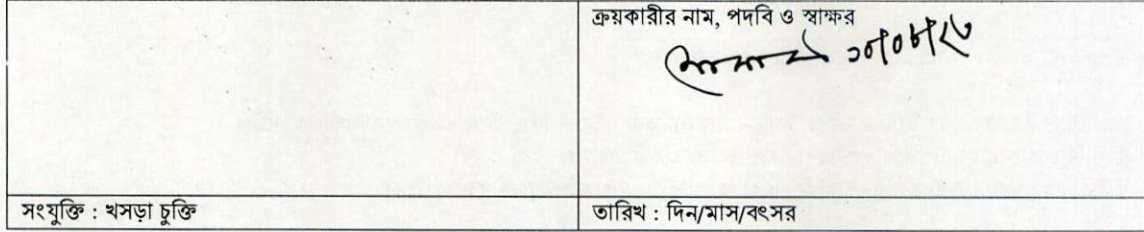 ক্রয়কারীর নাম, পদবি ও স্বাক্ষর
সংযুক্তি : খসড়া চুক্তি
তারিখ : দিন/মাস/বৎসর